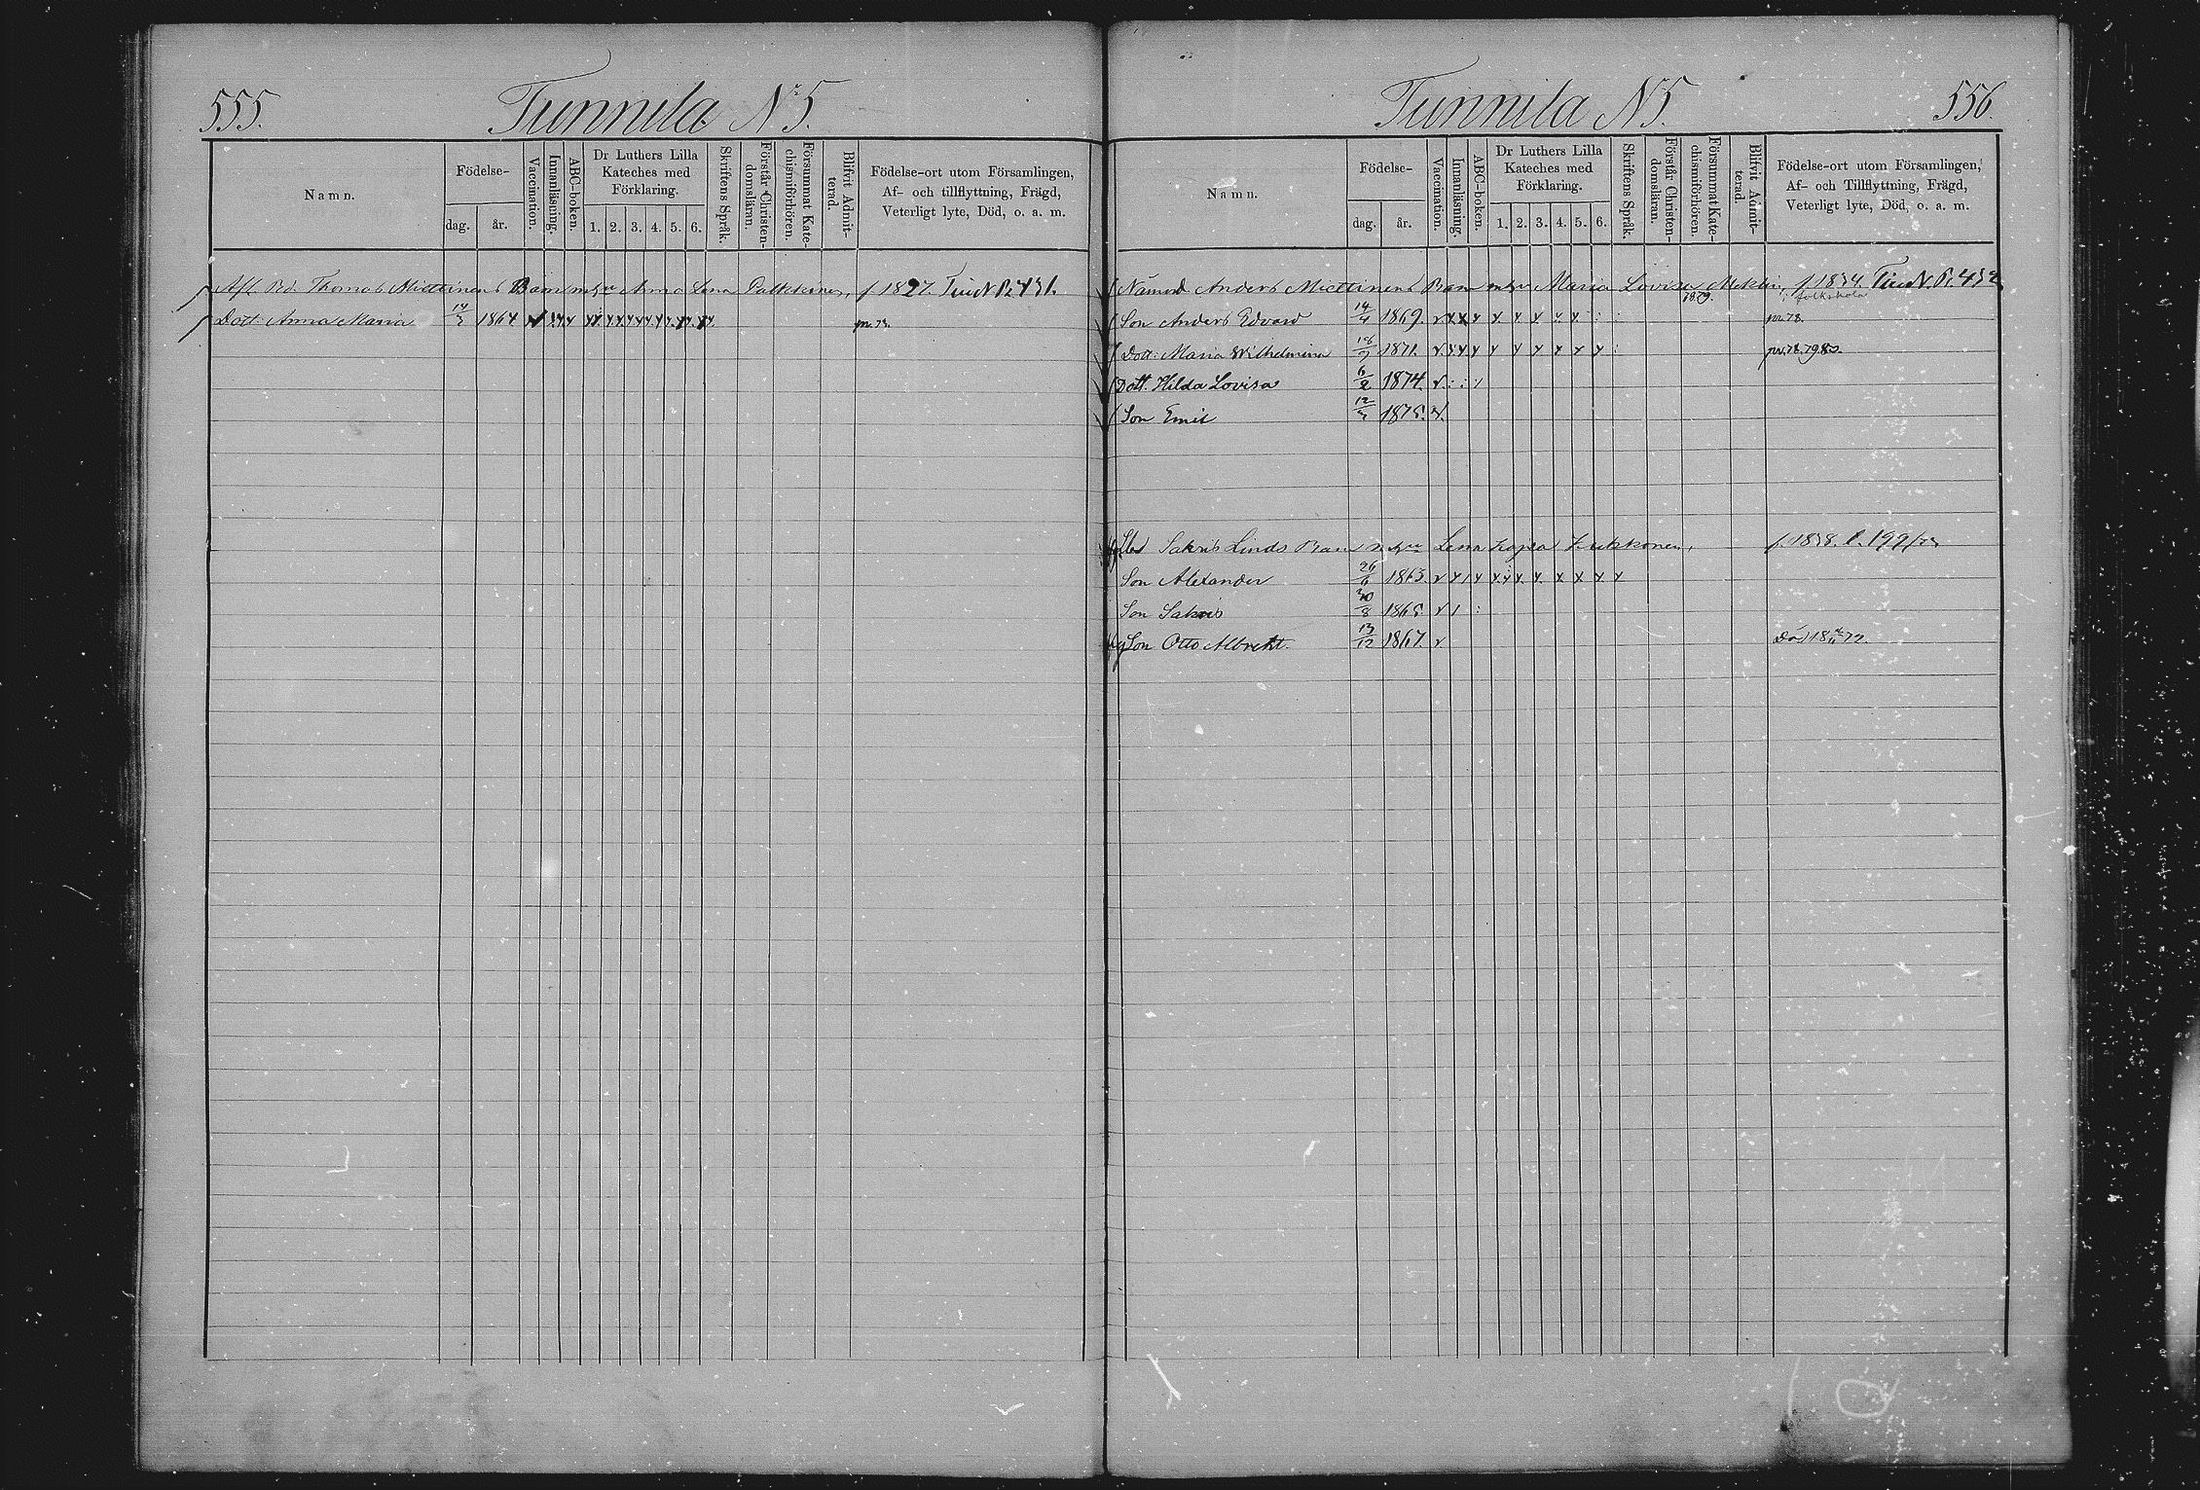 555.
Tunnila N:5.
Namn.
Födelse-
dag.
år.
Vaccination.
Innanläsning.
ABC-boken.
Dr Luthers Lilla
Kateches med
Förklaring.
1. 2. 3. 4. 5. 6.
Skriftens Språk.
Förstår Christen-
domsläran.
Försummat Kate-
chismiförhören.
Blifvit Admit-
terad.
Födelse-ort utom Församlingen,
Af- och tillflyttning, Frägd,
Veterligt lyte, Död, o. a. m.
Thomas Miettinens Barn m. h. Anna Lena f 1827.
Dott: Anna Maria 14/3 1864
Tunnila N 5.
556.
Namn.
Födelse-
dag.
år.
Vaccination.
Innanläsning.
ABC-boken.
Dr Luthers Lilla
Kateches med
Förklaring.
1. 2. 3. 4. 5. 6.
Skriftens Språk.
Förstår Christen-
domsläran.
Försummat Kate-
chismiförhören.
Blifvit Admit-
terad.
Födelse-ort utom Församlingen,
Af- och Tillflyttning, Frägd,
Veterligt lyte, Död, o. a. m.
Anders Miettinens Barn Maria Lovisa Meklin, f. 1834.
1879. folkskola
Son Anders Edvard 14/4 1869.
Dott: Maria Wilhelmina 18/7 1871.
Dott. Hilda Lovisa 6/2 1874.
Son Emil 1875.
Sakris Linds Barn Lena f. 1838.
Son Alexander 26/6 1863
Son Sakris 30/8 1865
Son Otto Albrekt. 13/12 1867.